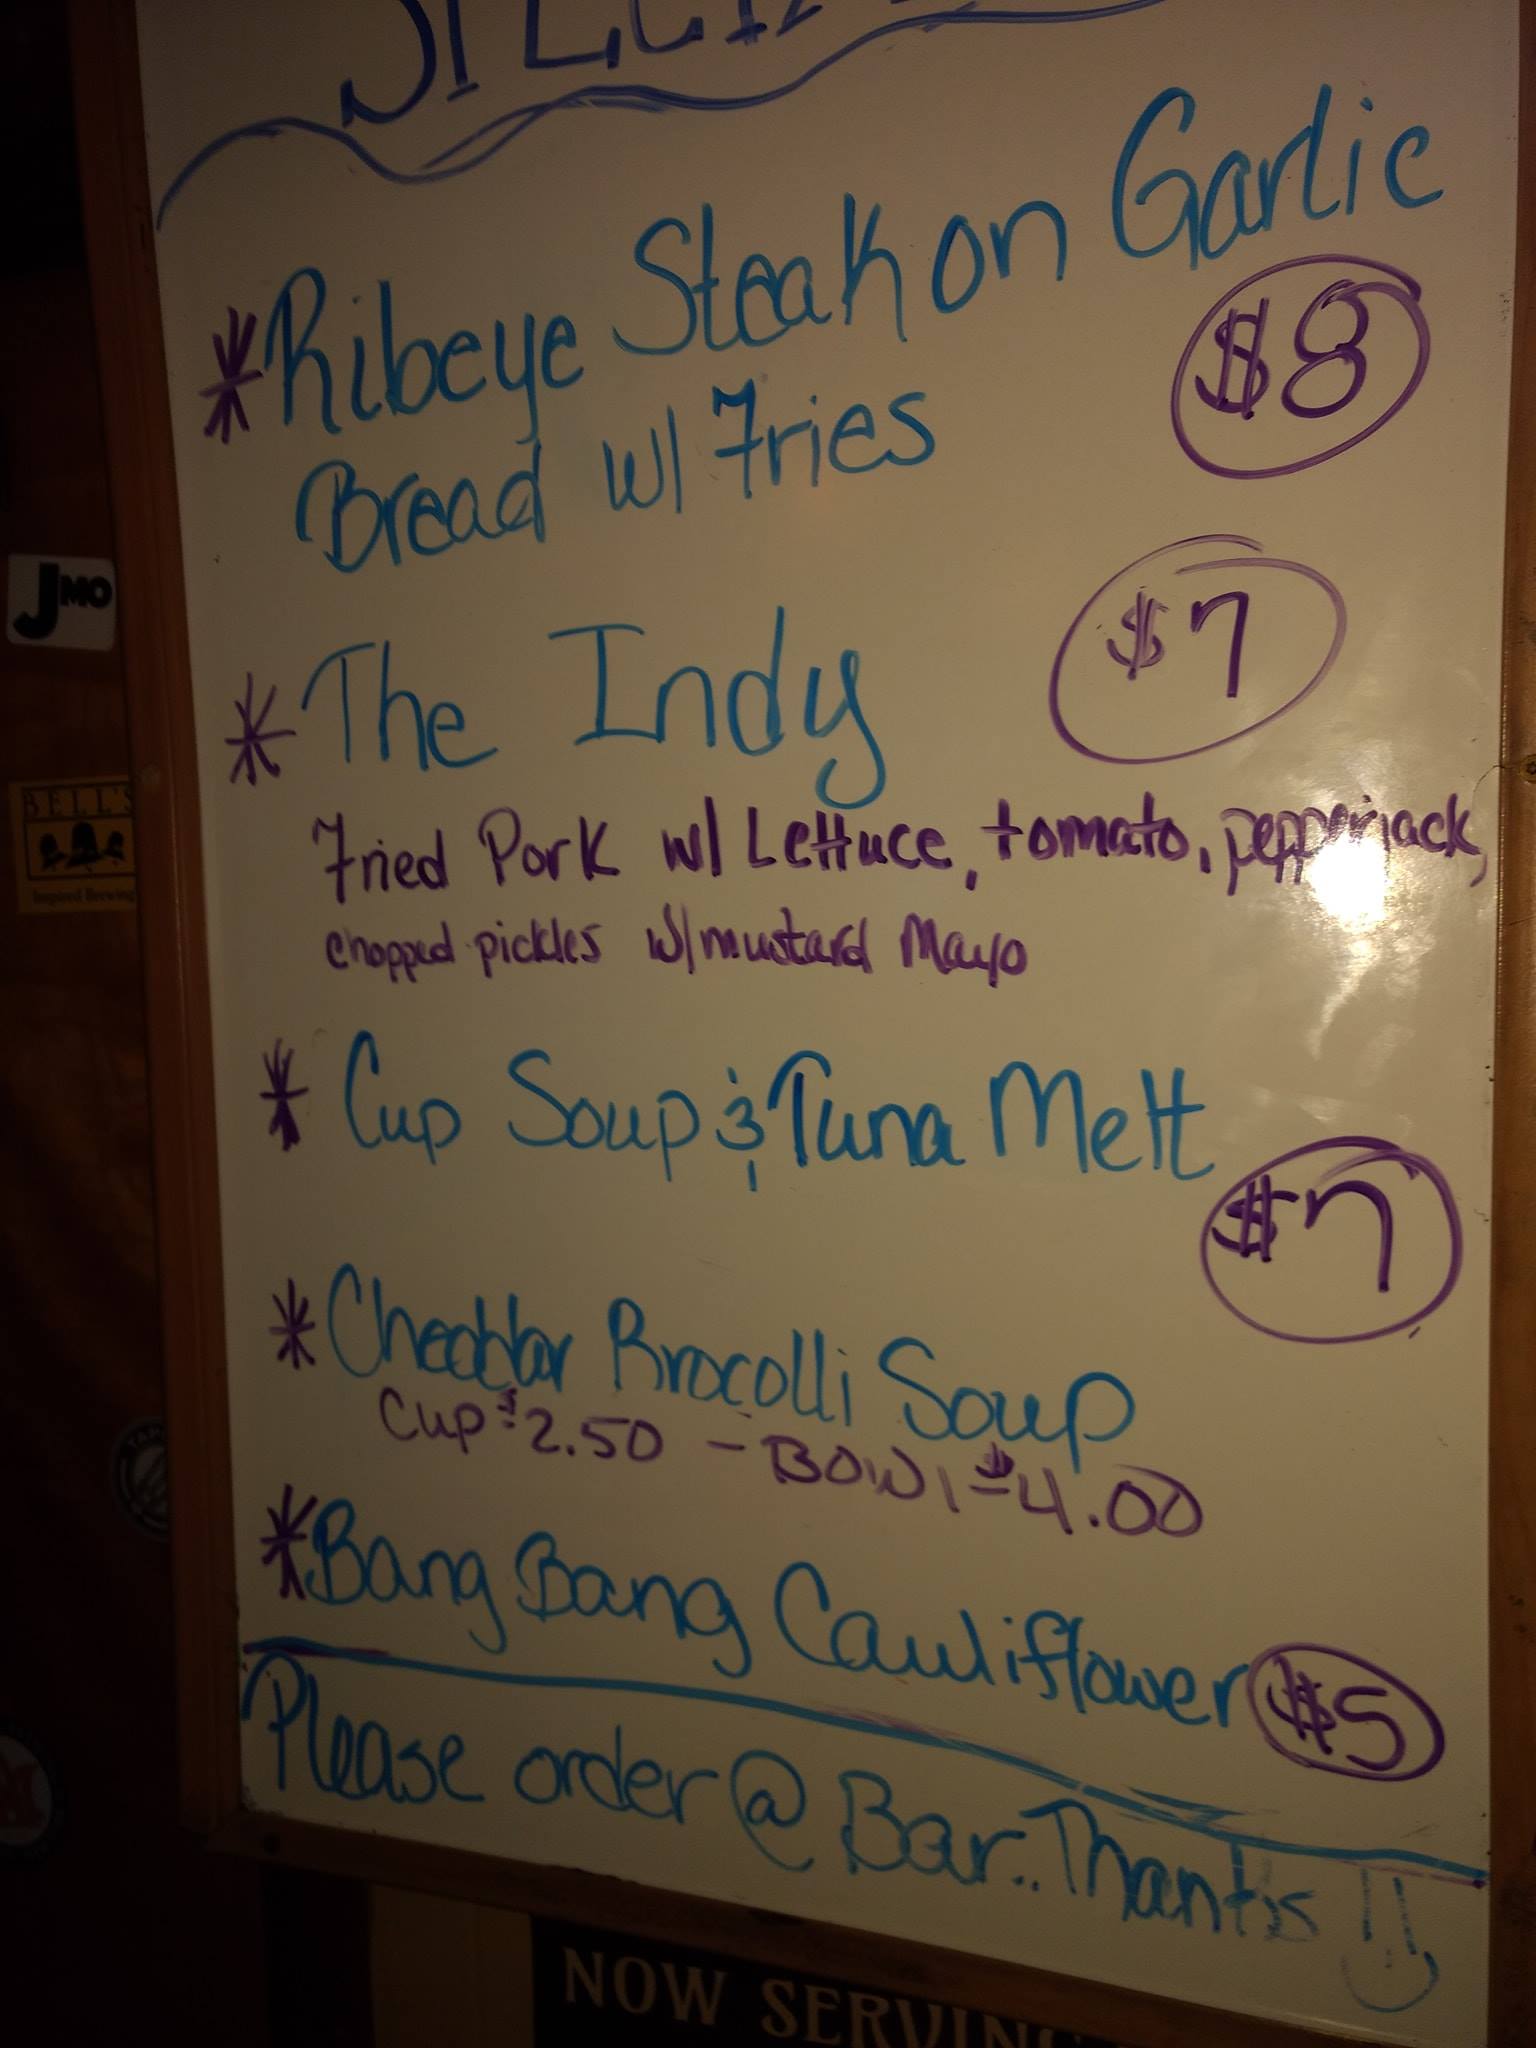 * Ribeye Steak on Garlic
Bread w/ Fries
$8
* The Indy
$7
Fried Pork w/ Lettuce, tomato, pepperjack,
chopped pickles w/ mustard Mayo
* Cup Soup & Tuna Melt
$7
* Cheddar Brocolli Soup
Cup $2.50 - Bowl $4.00
* Bang Bang Cauliflower $5
Please order @ Bar.. Thanks
JMO
BELL'S
Inspired Brewing
NOW SERVING